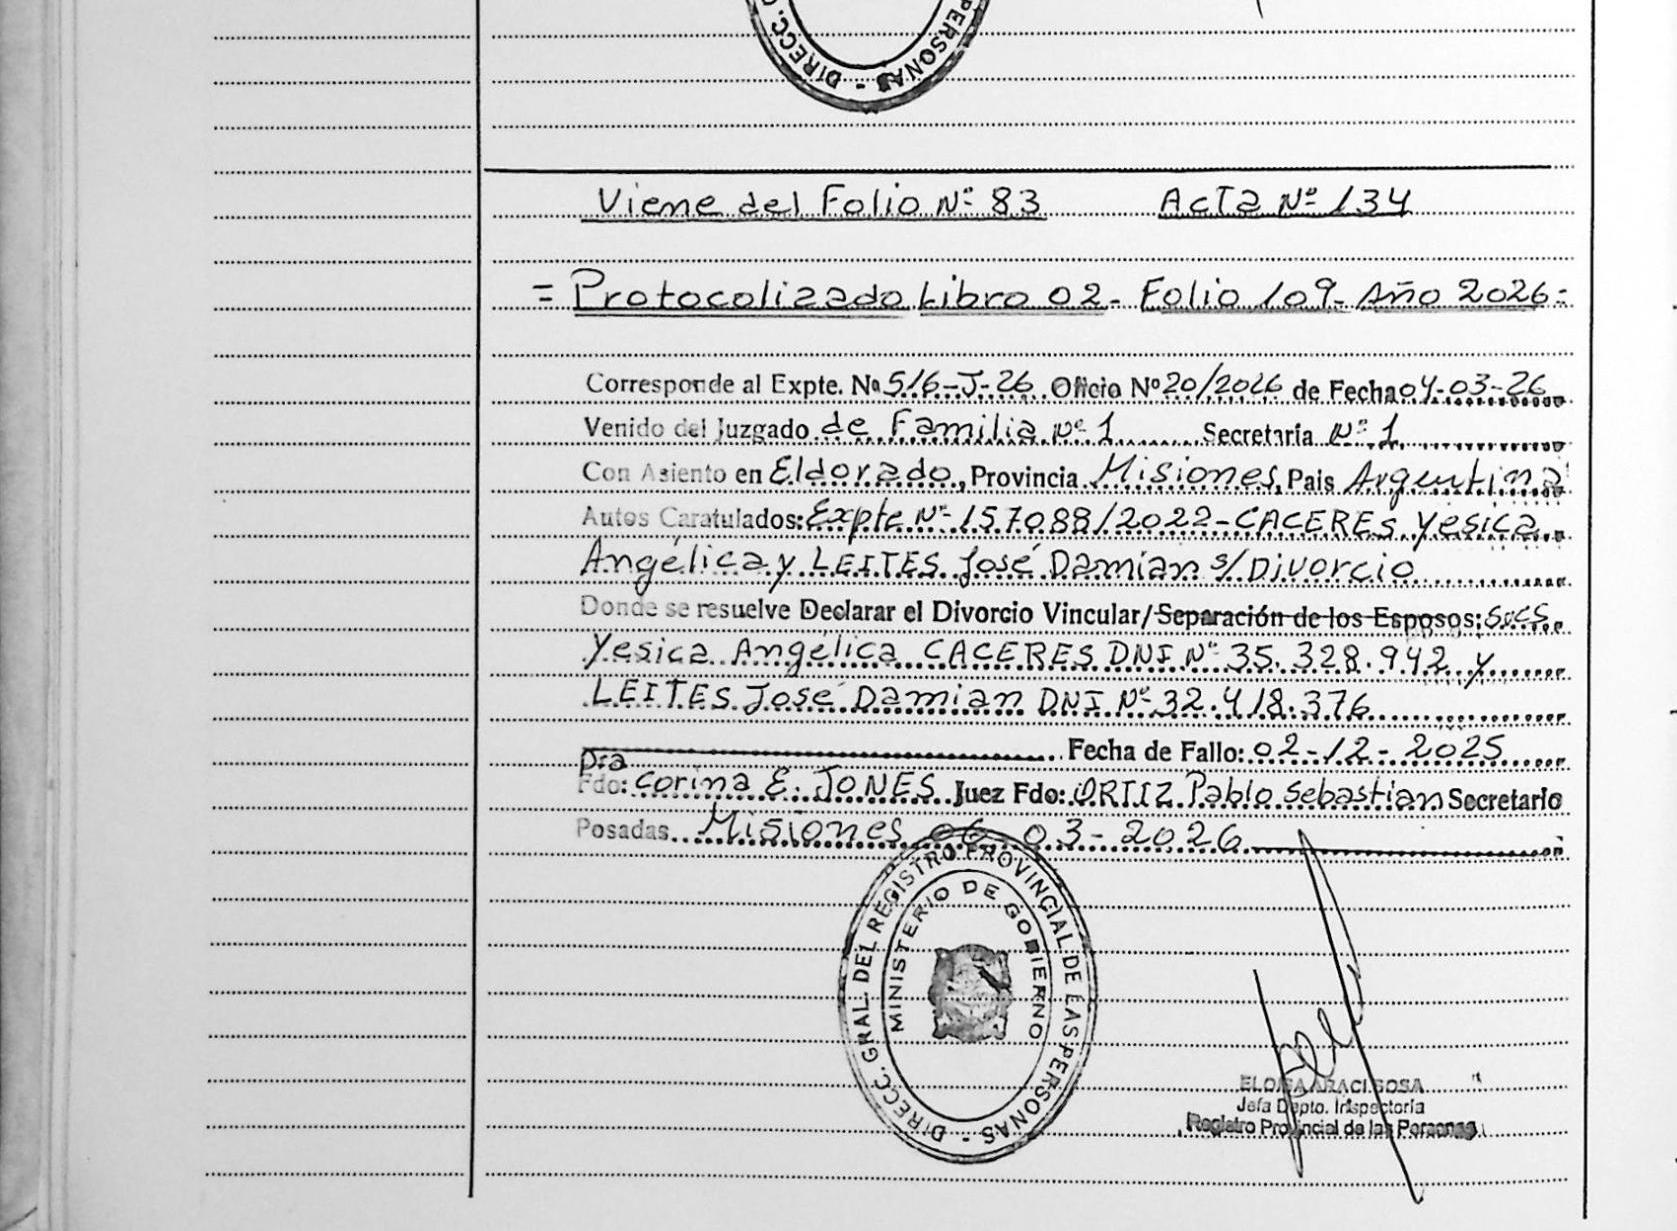 DIRECC. PERSONAS -
Viene del Folio Nº 83 Acta Nº 134
= Protocolizado Libro 02- Folio 109- Año 2026=
Corresponde al Expte. Nº 516-J-26 Oficio Nº 20/2026 de Fecha 04-03-26
Venido del Juzgado de Familia Nº 1 Secretaria Nº 1
Con Asiento en Eldorado, Provincia Misiones, Pais Argentina
Autos Caratulados: Expte Nº 157088/2022-CACERES Yesica
Angélica y LEITES José Damian s/Divorcio
Donde se resuelve Declarar el Divorcio Vincular/Separación de los Esposos: Sres
Yesica Angélica CACERES DNI Nº 35.328.942 y
LEITES José Damian DNI Nº 32.418.376
Fecha de Fallo: 02-12-2025
Dra
Fdo: Corina E. JONES Juez Fdo: ORTIZ Pablo Sebastian Secretario
Posadas Misiones 06 03-2026
DIRECC. GRAL. DEL REGISTRO PROVINCIAL DE LAS PERSONAS -
MINISTERIO DE GOBIERNO
ELOISA ARACI SOSA
Jefa Dpto. Inspectoria
Registro Provincial de las Personas